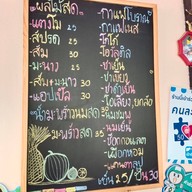 ผลไม้สด
-แตงโม 25
-สปรด 25
-ส้ม 30
-มะนาว 25
-ส้ม+มะนาว 35
-แอปเปิ้ล 30
-น้ำมะพร้าวนมสด 30
มะพร้าวสด 35
-กาแฟโบราณ
-กาแฟเนส
-โกโก้
-โอวัลติล
-ชาเย็น
-ชาเขียว
-ชาดำเย็น
-โอเลี้ยง,ยกล้อ
-นมชมพู
-นมเย็น
-ช็อกกอแลต
-เผือกหอม
เย็น 25/ปั่น 30
คนละ